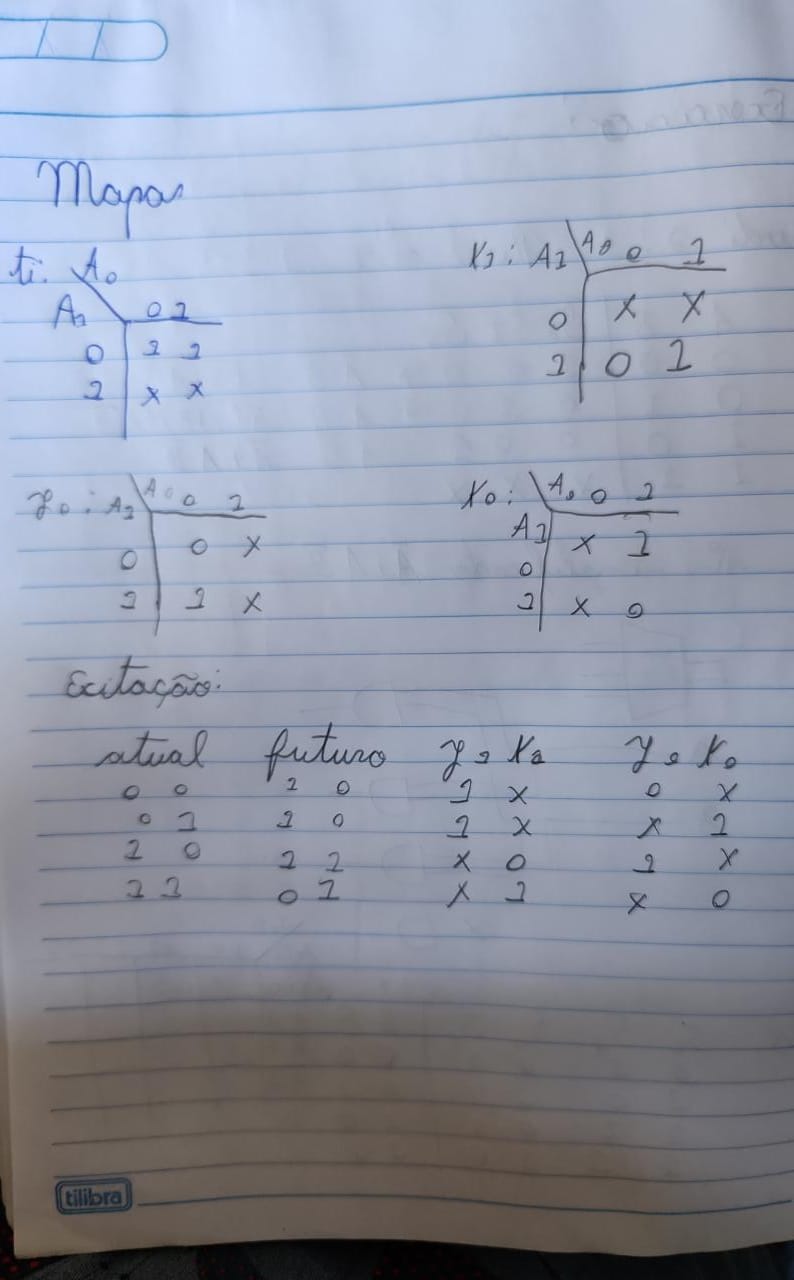 Mapas
J1: A0
A1 0 1
0 1 1
1 x x
K1: A1 A0 0 1
0 X X
1 0 1
J0: A1 A0 0 1
0 0 X
1 1 X
K0: A0 0 1
A1
0 X 1
1 X 0
Excitação:
atual futuro J1 K1 J0 K0
0 0 1 0 1 X 0 X
0 1 1 0 1 X X 1
1 0 1 1 X 0 1 X
1 1 0 1 X 1 X 0
tilibra